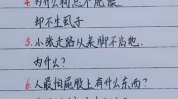 4.为什么
却不生虱子
5.小张走路从来脚不沾地,
为什么?
6.人最怕屁股上有什么东西?